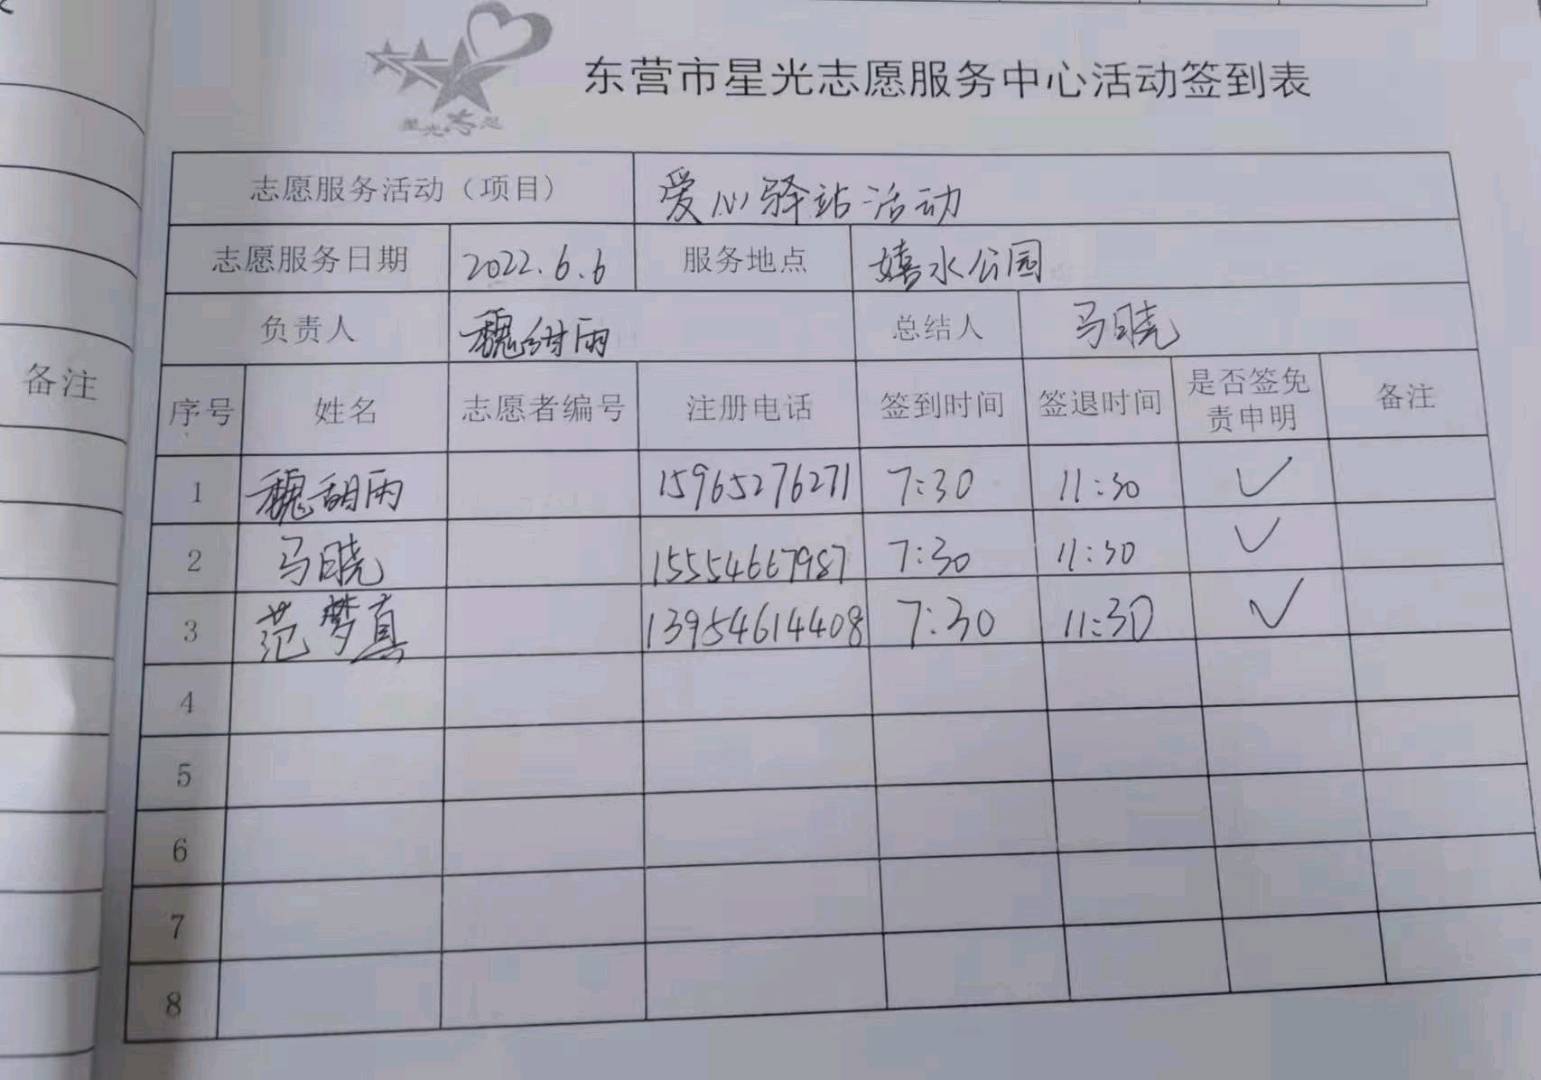 星光志愿
东营市星光志愿服务中心活动签到表
志愿服务活动（项目） 爱心驿站活动
志愿服务日期 2022.6.6 服务地点 嬉水公园
负责人 魏甜雨 总结人 马晓
备注
序号 姓名 志愿者编号 注册电话 签到时间 签退时间 是否签免责申明 备注
1 魏甜雨 15965276271 7:30 11:30 ✓
2 马晓 15554667987 7:30 11:30 ✓
3 范梦真 13954614408 7:30 11:30 ✓
4
5
6
7
8